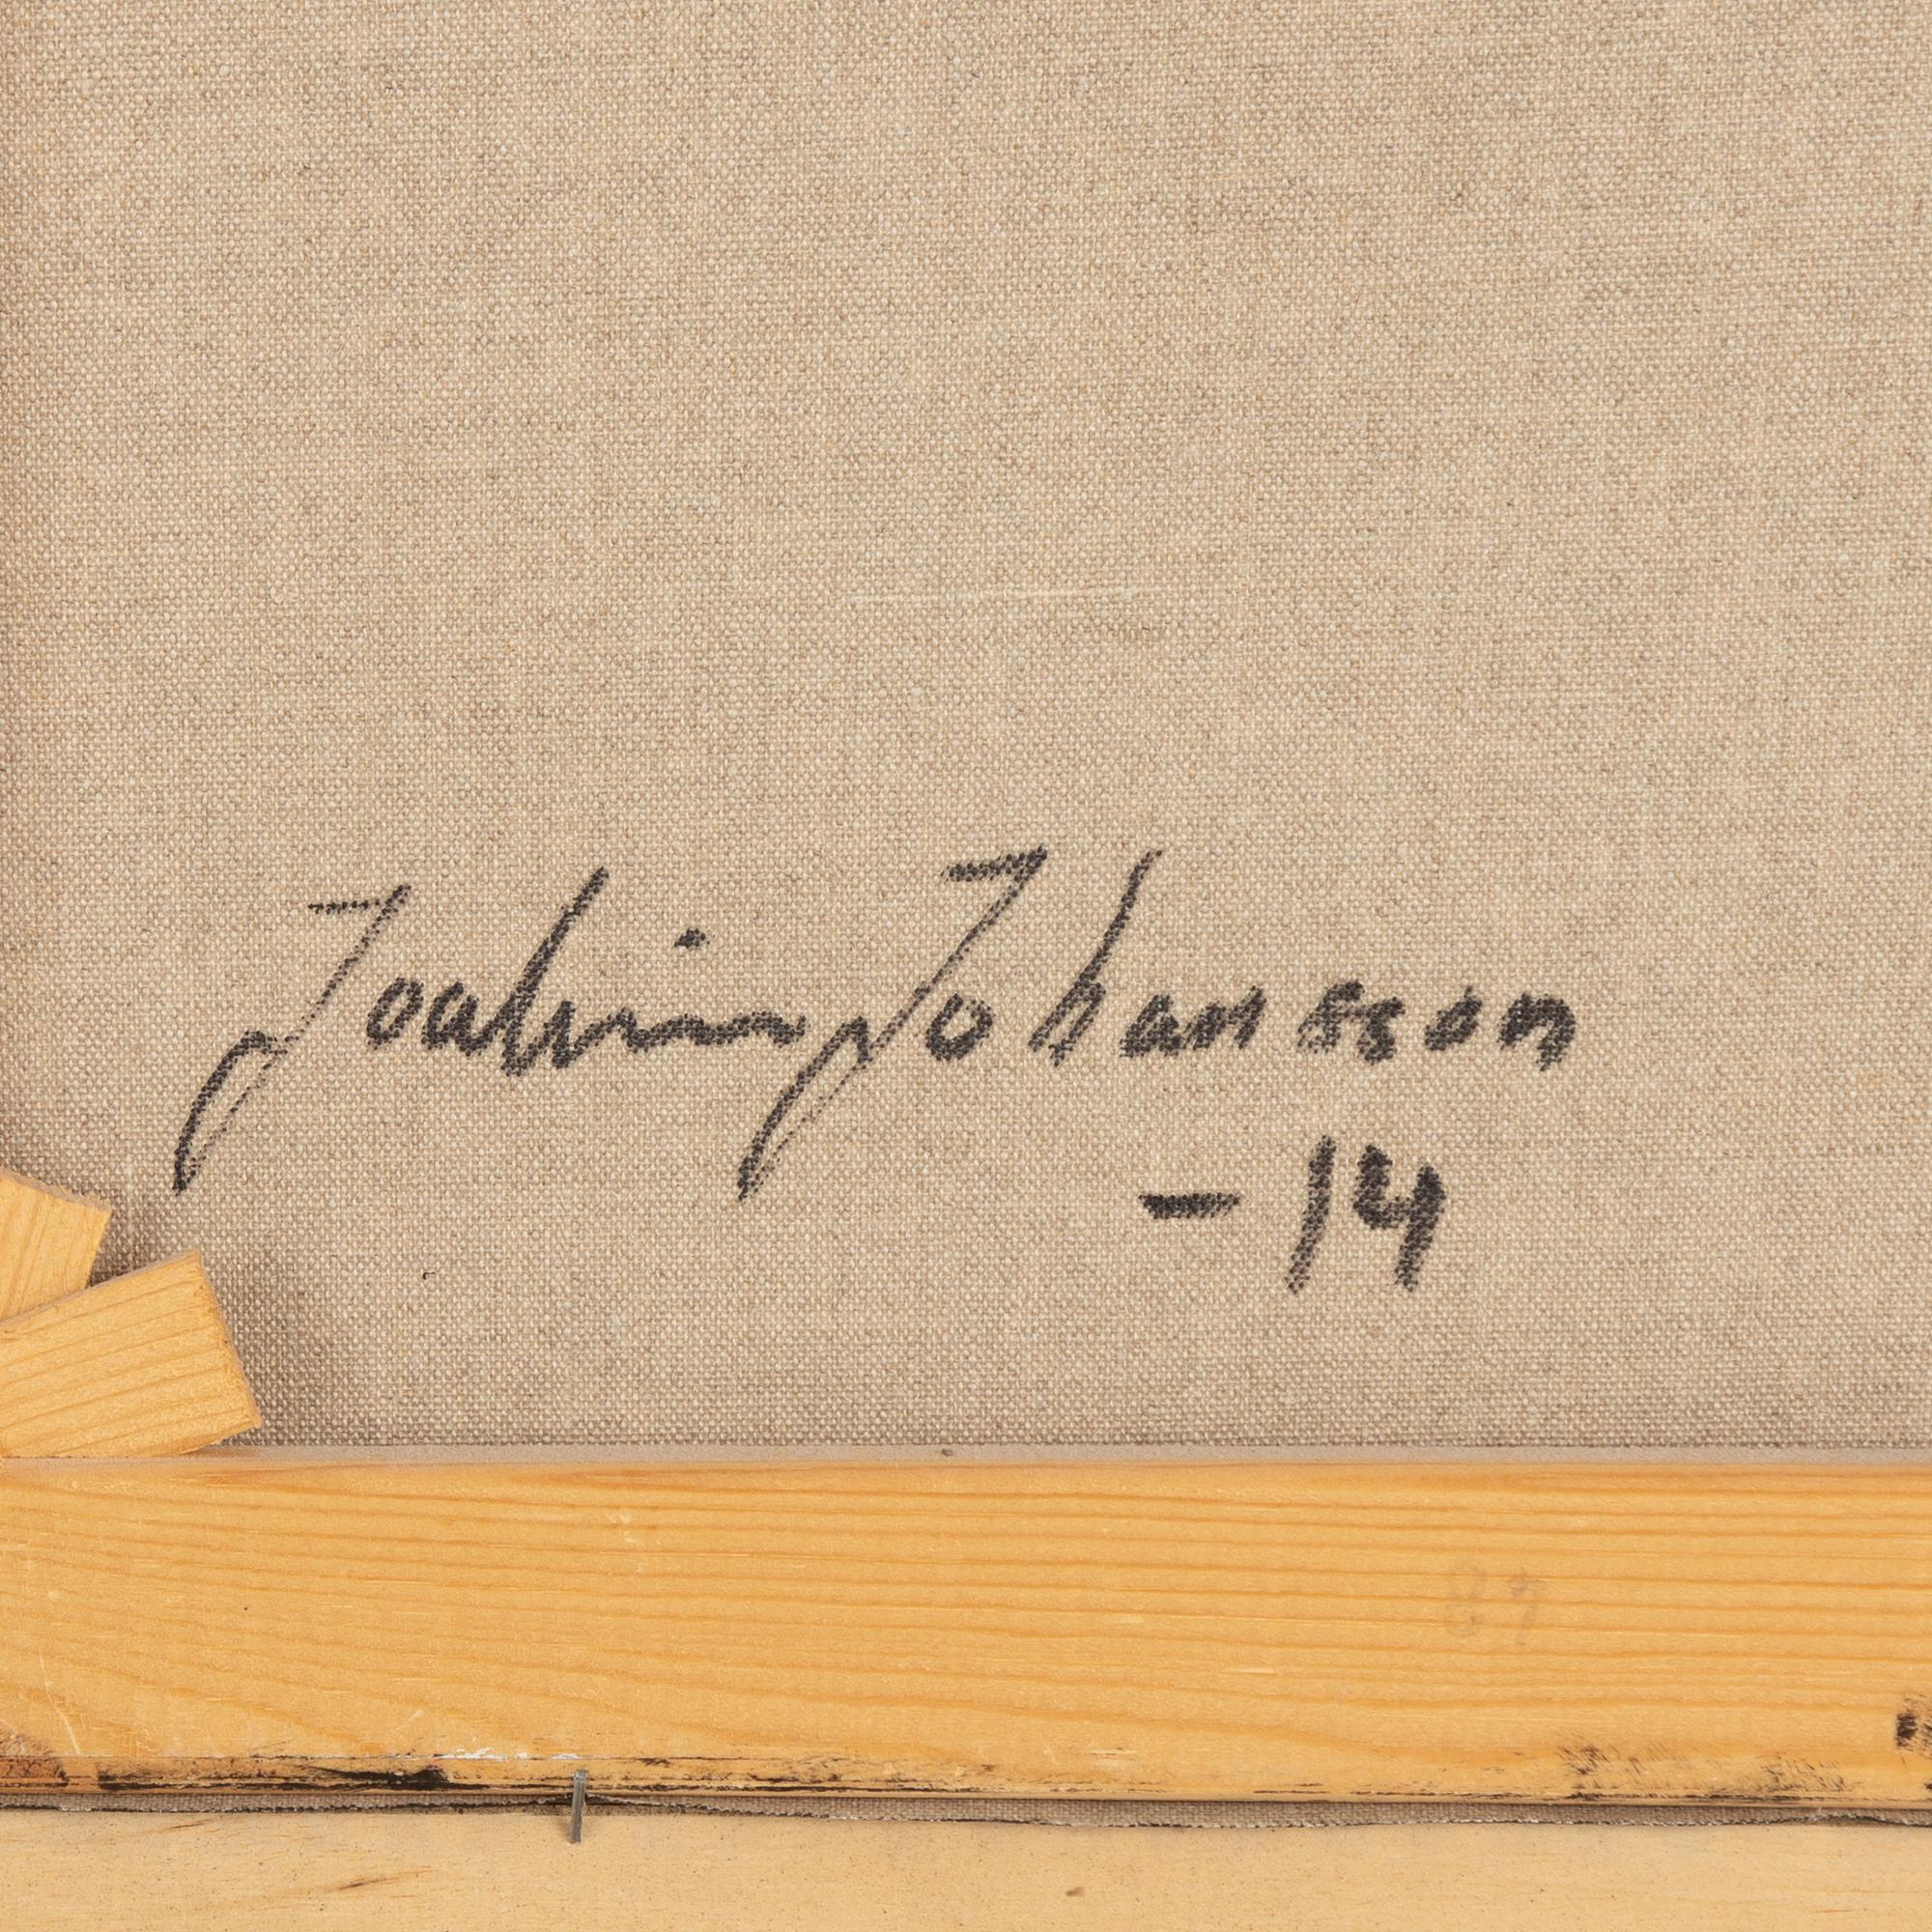 Joakim Johansson
-14